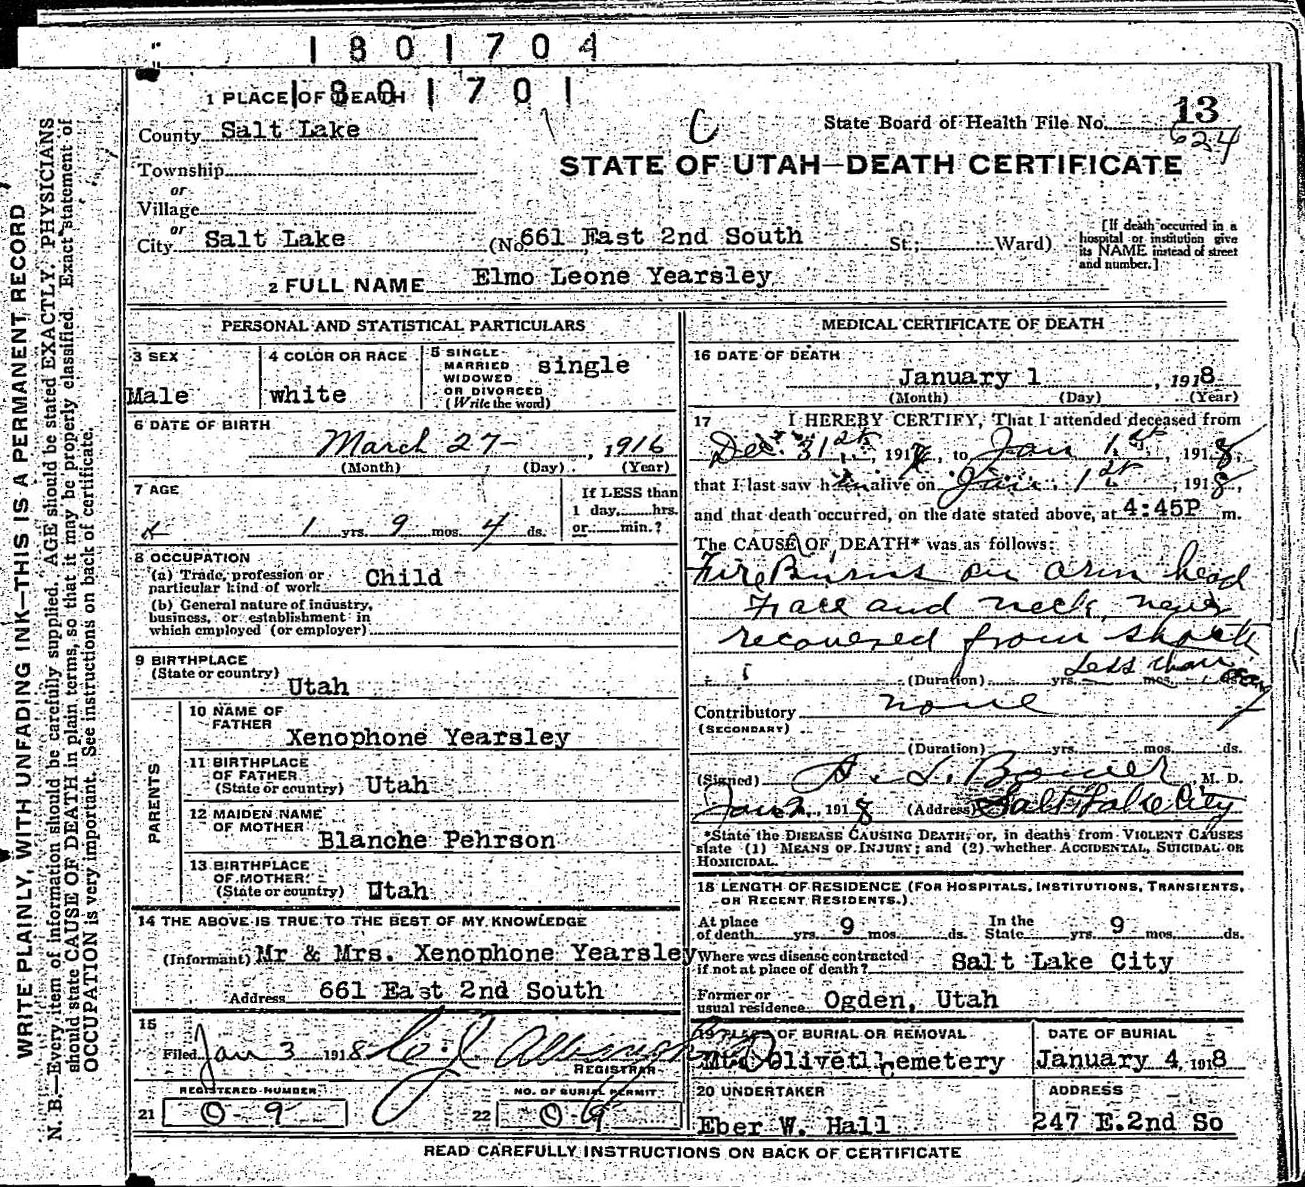 1801704
1801701
1 PLACE OF DEATH
County Salt Lake
State Board of Health File No. 13
624
C
STATE OF UTAH—DEATH CERTIFICATE
Township
or
Village
or
City Salt Lake (No 661 East 2nd South St.; Ward)
[If death occurred in a hospital or institution give its NAME instead of street and number.]
2 FULL NAME Elmo Leone Yearsley
PERSONAL AND STATISTICAL PARTICULARS
3 SEX
Male
4 COLOR OR RACE
white
5 SINGLE
MARRIED
WIDOWED
OR DIVORCED
(Write the word)
single
6 DATE OF BIRTH
March 27 , 1916
(Month) (Day) (Year)
7 AGE
1 yrs. 9 mos. 4 ds.
If LESS than
1 day, hrs.
or min.?
8 OCCUPATION
(a) Trade, profession or
particular kind of work Child
(b) General nature of industry,
business, or establishment in
which employed (or employer)
9 BIRTHPLACE
(State or country)
Utah
PARENTS
10 NAME OF
FATHER
Xenophone Yearsley
11 BIRTHPLACE
OF FATHER
(State or country) Utah
12 MAIDEN NAME
OF MOTHER
Blanche Pehrson
13 BIRTHPLACE
OF MOTHER
(State or country) Utah
14 THE ABOVE IS TRUE TO THE BEST OF MY KNOWLEDGE
(Informant) Mr & Mrs. Xenophone Yearsley
Address 661 East 2nd South
15
Filed Jan 3 1918
REGISTRAR
REGISTERED NUMBER
21 0-9
NO. OF BURIAL PERMIT
22 0-9
MEDICAL CERTIFICATE OF DEATH
16 DATE OF DEATH
January 1 , 1918
(Month) (Day) (Year)
17 I HEREBY CERTIFY, That I attended deceased from
Dec. 31st, 191 , to Jan 1st, 1918,
that I last saw him alive on Jan. 1st, 1918,
and that death occurred, on the date stated above, at 4:45P m.
The CAUSE OF DEATH* was as follows:
Fire Burns on arm head
Face and neck, never
recovered from shock
(Duration) yrs. mos. Less than 1 day
Contributory none
(SECONDARY)
(Duration) yrs. mos. ds.
(Signed) A. L. Bower, M. D.
Jan 2, 1918 (Address) Salt Lake City
*State the DISEASE CAUSING DEATH; or, in deaths from VIOLENT CAUSES
state (1) MEANS OF INJURY; and (2) whether ACCIDENTAL, SUICIDAL OR
HOMICIDAL.
18 LENGTH OF RESIDENCE (FOR HOSPITALS, INSTITUTIONS, TRANSIENTS,
OR RECENT RESIDENTS.)
At place
of death yrs. 9 mos. ds. In the
State yrs. 9 mos. ds.
Where was disease contracted
if not at place of death? Salt Lake City
Former or
usual residence Ogden, Utah
19 PLACE OF BURIAL OR REMOVAL
Mt. Olivet Cemetery
DATE OF BURIAL
January 4, 1918
20 UNDERTAKER
Eber W. Hall
ADDRESS
247 E.2nd So
READ CAREFULLY INSTRUCTIONS ON BACK OF CERTIFICATE
WRITE PLAINLY, WITH UNFADING INK—THIS IS A PERMANENT RECORD
N. B.—Every item of information should be carefully supplied. AGE should be stated EXACTLY. PHYSICIANS
should state CAUSE OF DEATH in plain terms, so that it may be properly classified. Exact statement of
OCCUPATION is very important. See instructions on back of certificate.